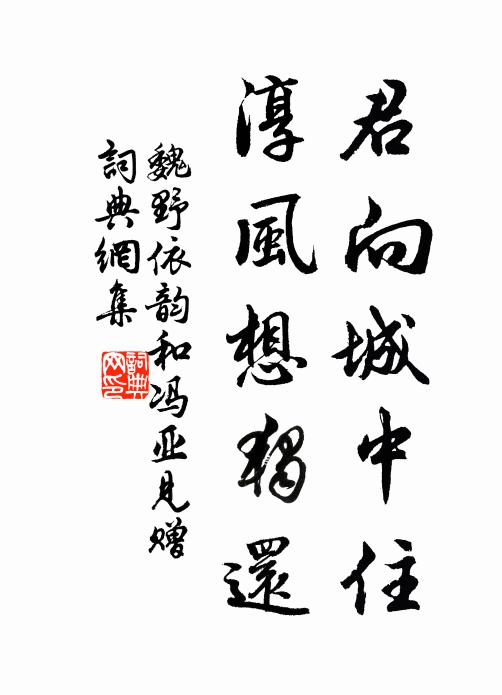 君向城中住
淳風想獨還
魏野依韵和冯亚见赠
詞典網集
詞典网印